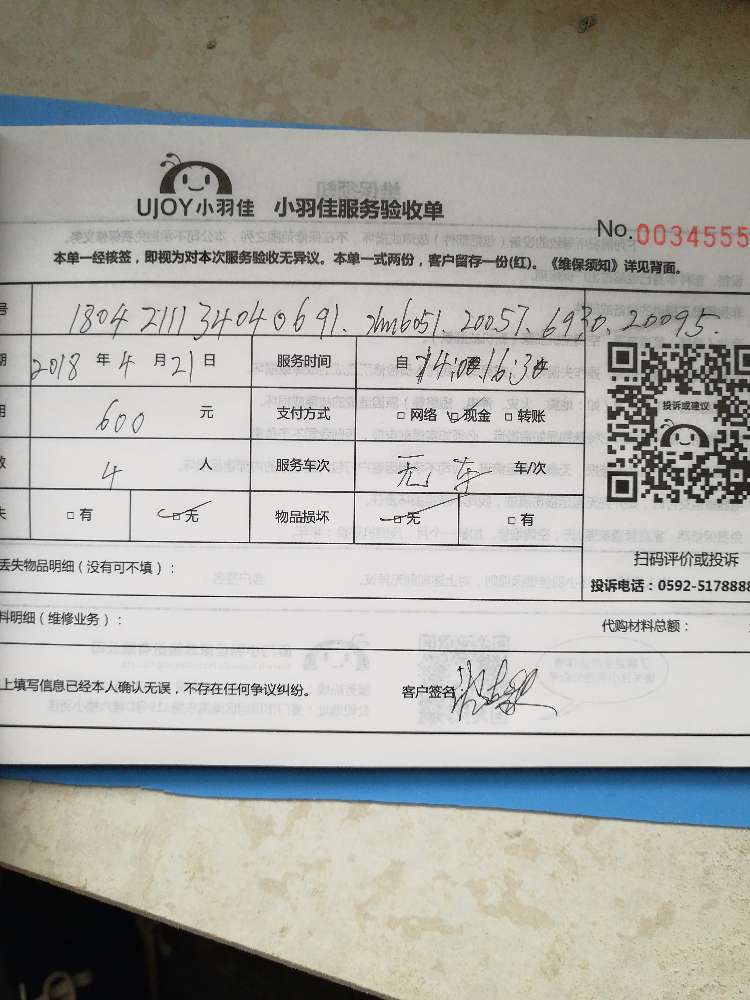 UJOY小羽佳 小羽佳服务验收单
No.0034555
本单一经核签，即视为对本次服务验收无异议。本单一式两份，客户留存一份(红)。《维保须知》详见背面。
号 1804211134040691. zm6051. 20057. 6930. 20095.
期 2018 年 4 月 21 日 服务时间 自 14:00 16:30
用 600 元 支付方式 □ 网络 □ 现金 □ 转账
数 4 人 服务车次 无 车 车/次
投诉或建议
失 □ 有 □ 无 物品损坏 □ 无 □ 有
扫码评价或投诉
丢失物品明细（没有可不填）：
投诉电话：0592-5178888
料明细（维修业务）：
代购材料总额：
上填写信息已经本人确认无误，不存在任何争议纠纷。 客户签名